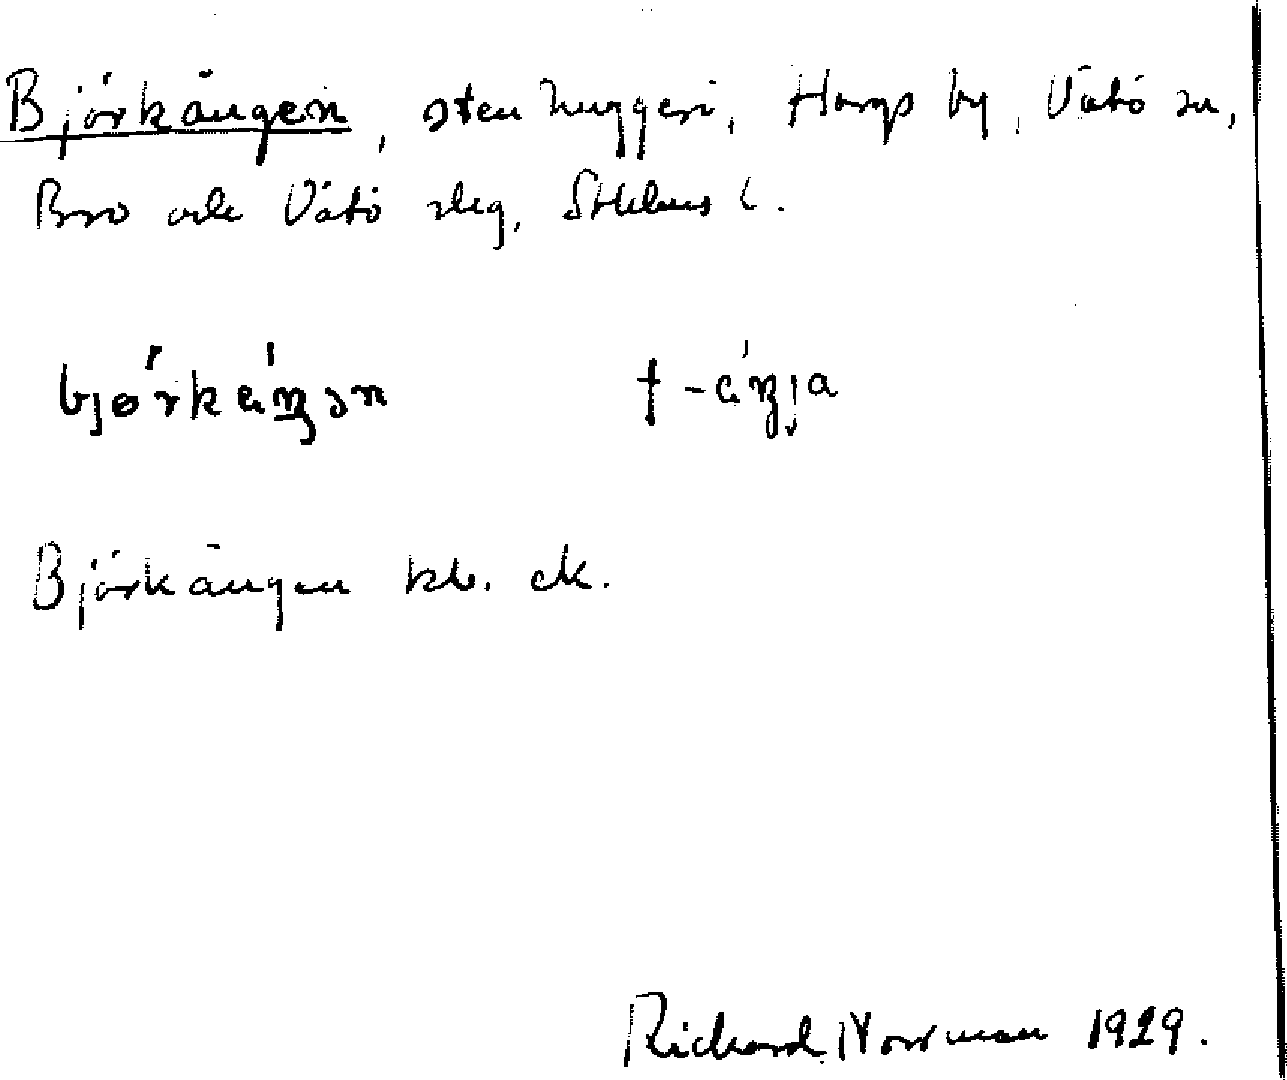 Björkängen, stenhuggeri, Hargs by, Vätö sn,
Bro och Vätö skg, Sthlms l.
bjørkäŋən † -äŋja
Björkängen kb. ek.
Richard Norrman 1929.